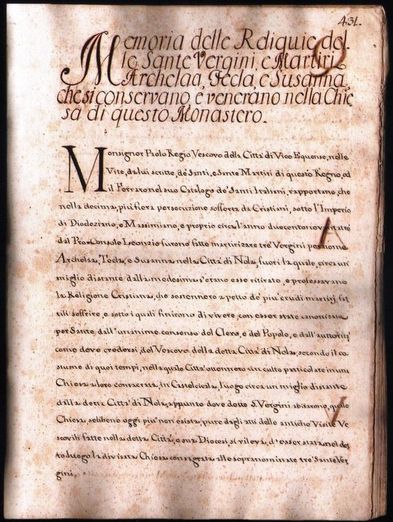 431.
Memoria delle Reliquie del-
le Sante Vergini, e Martiri
Archelaa, Tecla, e Susanna,
che si conservano, e venerano nella Chie
sa di questo Monastero.
Monsignor Paolo Regio Vescovo della Città di Vico Equense, nelle
Vite, da lui scritte, de' Santi, e Sante Martiri di questo Regno, ed
il Ferrario nel suo Catalogo de' Santi Italiani, rapportano, che
nella decima, più fiera persecuzione sofferta da Cristiani, sotto l'Imperio
di Diocleziano, e Massimiano, e proprio circa l'anno duecento
dal Proconsolo Leonzio furono fatte martirizare tre Vergini per nome
Archelaa, Tecla, e Susanna nella Città di Nola, fuori la quale, circa un
miglio distante dalla medesima s'erano esse ritirate, e professavano
la Religione Cristiana, che sostennero a petto de' più crudi martirj fat
tili soffrire, e sotto i quali finirono di vivere, con esser state
per Sante dall'unanime consenso del Clero, e del Popolo, e dall'autorità
come deve credersi, del Vescovo della detta Città di Nola, secondo il co
sume di quei tempi, nella quale Città ottennero un culto particolare in una
Chiesa a loro consecrata, in luogo circa un miglio distante
dalla detta Città di Nola, appunto dove dette S. Vergini abitavano, quale
Chiesa, sebbene oggi più non esista, pure dagli atti delle antiche Visite Ve
scovili fatte nella detta Città, e sua Diocesi, si rileva, d'esser stata nel det
to luogo la divisata Chiesa consegrata alle sopranominate tre Sante Ver
gini.